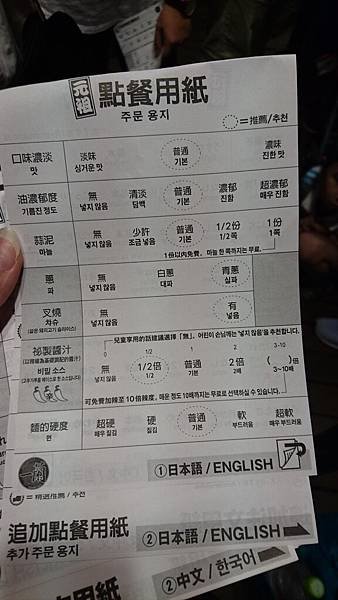 元祖 點餐用紙
주문 용지
=推薦/추천
口味濃淡 淡味 普通 濃味
맛 싱거운 맛 기본 진한 맛
油濃郁度 無 清淡 普通 濃郁 超濃郁
기름진 정도 넣지 않음 담백 기본 진함 매우 진함
蒜泥 無 少許 普通 1/2份 1份
마늘 넣지 않음 조금 넣음 기본 1/2 쪽 1 쪽
1份以內免費。 마늘 한 쪽까지는 무료.
蔥 無 白蔥 青蔥
파 넣지 않음 대파 실파
叉燒 無 有
차슈 넣지 않음 넣음
兒童享用的話建議選擇「無」。 어린이 손님께는 '넣지 않음'을 추천합니다.
祕製醬汁 0 1/2 1 2 3~10
無 1/2倍 普通 2倍 ( )倍
비밀 소스 넣지 않음 1/2 기본 2배 3~10배
可免費加辣至 10倍辣度。 매운 정도 10배까지는 무료로 선택하실 수 있습니다.
麵的硬度 超硬 硬 普通 軟 超軟
면 매우 질김 질김 기본 부드러움 매우 부드러움
一蘭
①日本語 / ENGLISH
=精選推薦 / 추천
追加點餐用紙
추가 주문 용지
②日本語 / ENGLISH
用紙
②中文 / 한국어